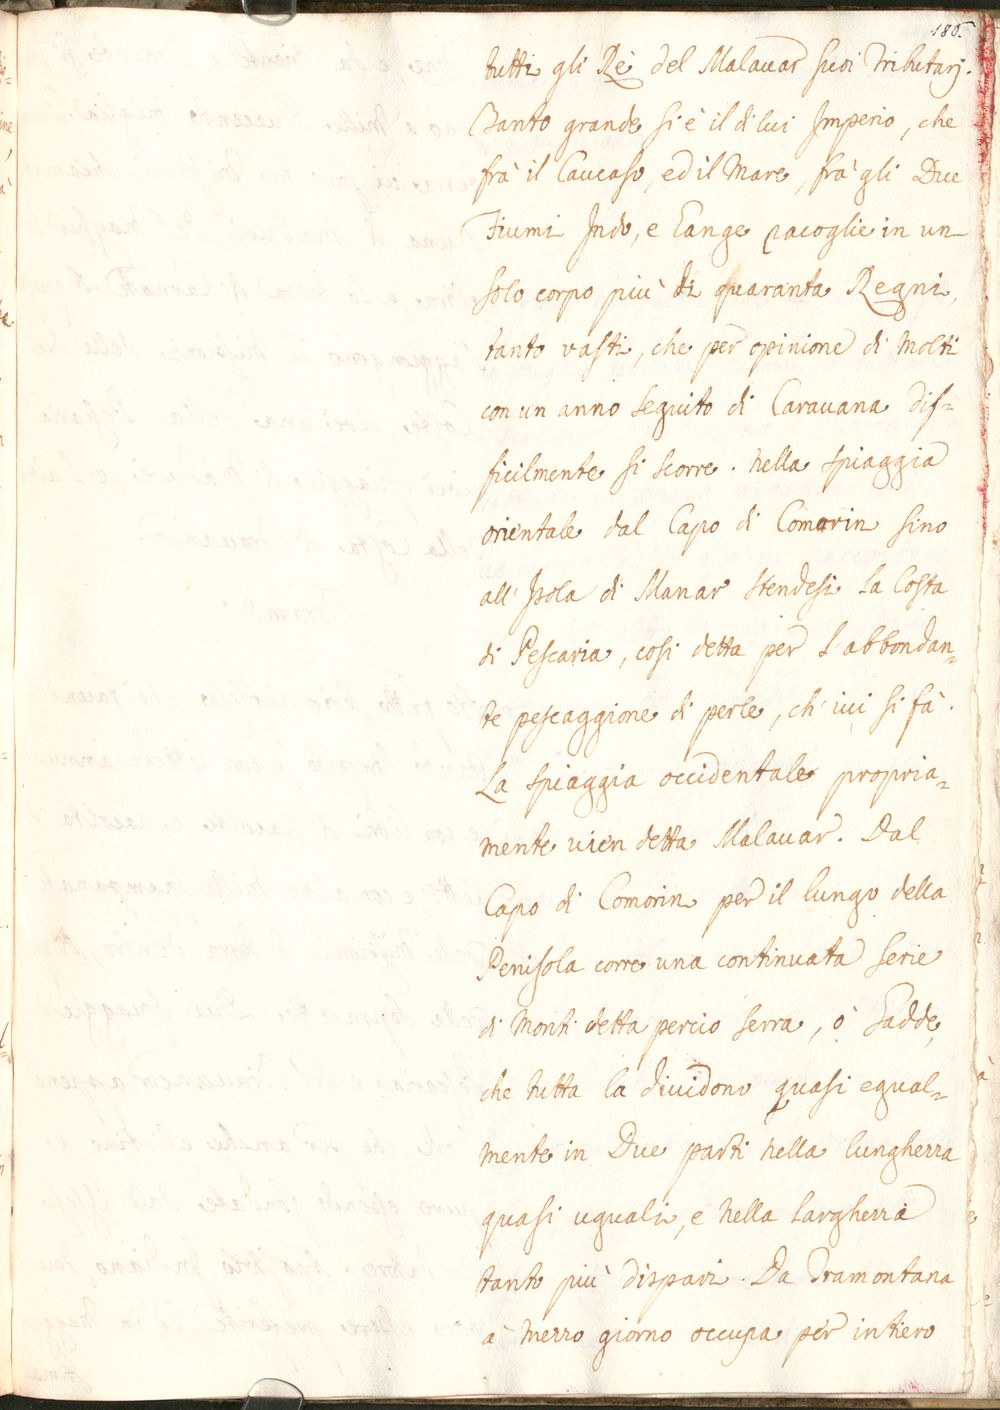 186.
tutti gli Rè del Malauar suoi Tributarj.
Tanto grande si è il di lui Imperio, che
frà il Caucaso, ed il Mare, frà gli Due
Fiumi Indo, e Gange racoglie in un
solo corpo più di quaranta Regni,
tanto vasti, che per opinione di Molti
con un anno seguito di Carauana dif=
ficilmente si scorre. Nella spiaggia
orientale dal Capo di Comorin sino
all' Isola di Manar stendesi la Costa
di Pescaria, cosi detta per l'abbondan=
te pescaggione di perle, ch' iui si fà.
La spiaggia occidentale propria=
mente uien detta Malauar. Dal
Capo di Comorin per il lungo della
Penisola corre una continuata serie
di Monti detta perciò Serra, ò Gadde,
che tutta la diuidono quasi egual=
mente in Due parti nella lunghezza
quasi uguali, e nella larghezza
tanto più dispari. Da Tramontana
à Mezzo giorno occupa per intiero